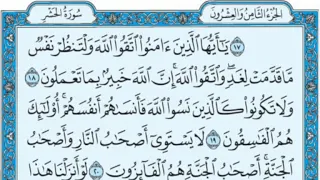 الجزء الثامن والعشرون سورة الحشر
١٧ يَـٰٓأَيُّهَا ٱلَّذِينَ ءَامَنُوا۟ ٱتَّقُوا۟ ٱللَّهَ وَلْتَنظُرْ نَفْسٌ
مَّا قَدَّمَتْ لِغَدٍ ۖ وَٱتَّقُوا۟ ٱللَّهَ ۚ إِنَّ ٱللَّهَ خَبِيرٌۢ بِمَا تَعْمَلُونَ ١٨
وَلَا تَكُونُوا۟ كَٱلَّذِينَ نَسُوا۟ ٱللَّهَ فَأَنسَىٰهُمْ أَنفُسَهُمْ ۚ أُو۟لَـٰٓئِكَ
هُمُ ٱلْفَـٰسِقُونَ ١٩ لَا يَسْتَوِىٓ أَصْحَـٰبُ ٱلنَّارِ وَأَصْحَـٰبُ
ٱلْجَنَّةِ ۚ أَصْحَـٰبُ ٱلْجَنَّةِ هُمُ ٱلْفَآئِزُونَ ٢٠ لَوْ أَنزَلْنَا هَـٰذَا